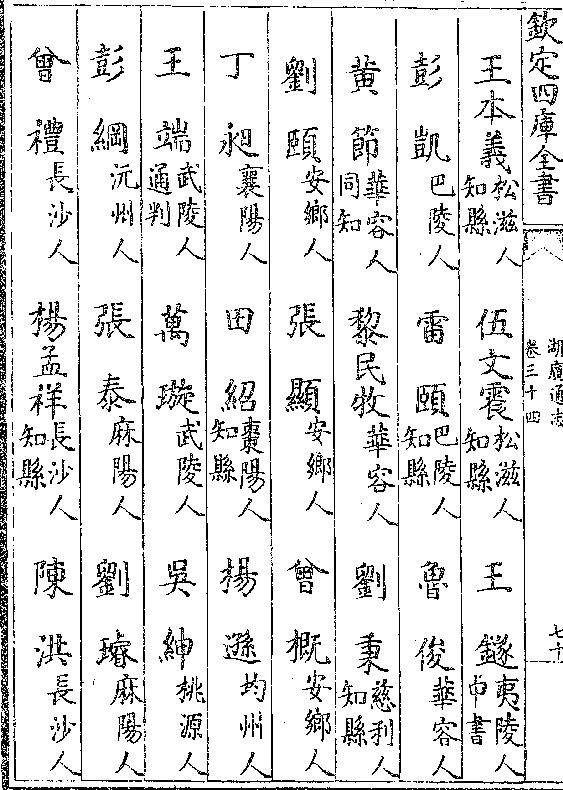 欽定四庫全書
湖廣通志
卷三十四
七十
王本義松滋人知縣 伍文震松滋人知縣 王鐩夷陵人中書
彭凱巴陵人 雷頤巴陵人知縣 魯俊華容人
黄節華容人同知 黎民牧華容人 劉秉慈利人知縣
劉頤安鄉人 張顯安鄉人 曾概安鄉人
丁昶襄陽人 田紹棗陽人知縣 楊遜均州人
王端武陵人通判 萬璇武陵人 吳紳桃源人
彭綱沅州人 張泰麻陽人 劉璿麻陽人
曾禮長沙人 楊孟祥長沙人知縣 陳洪長沙人